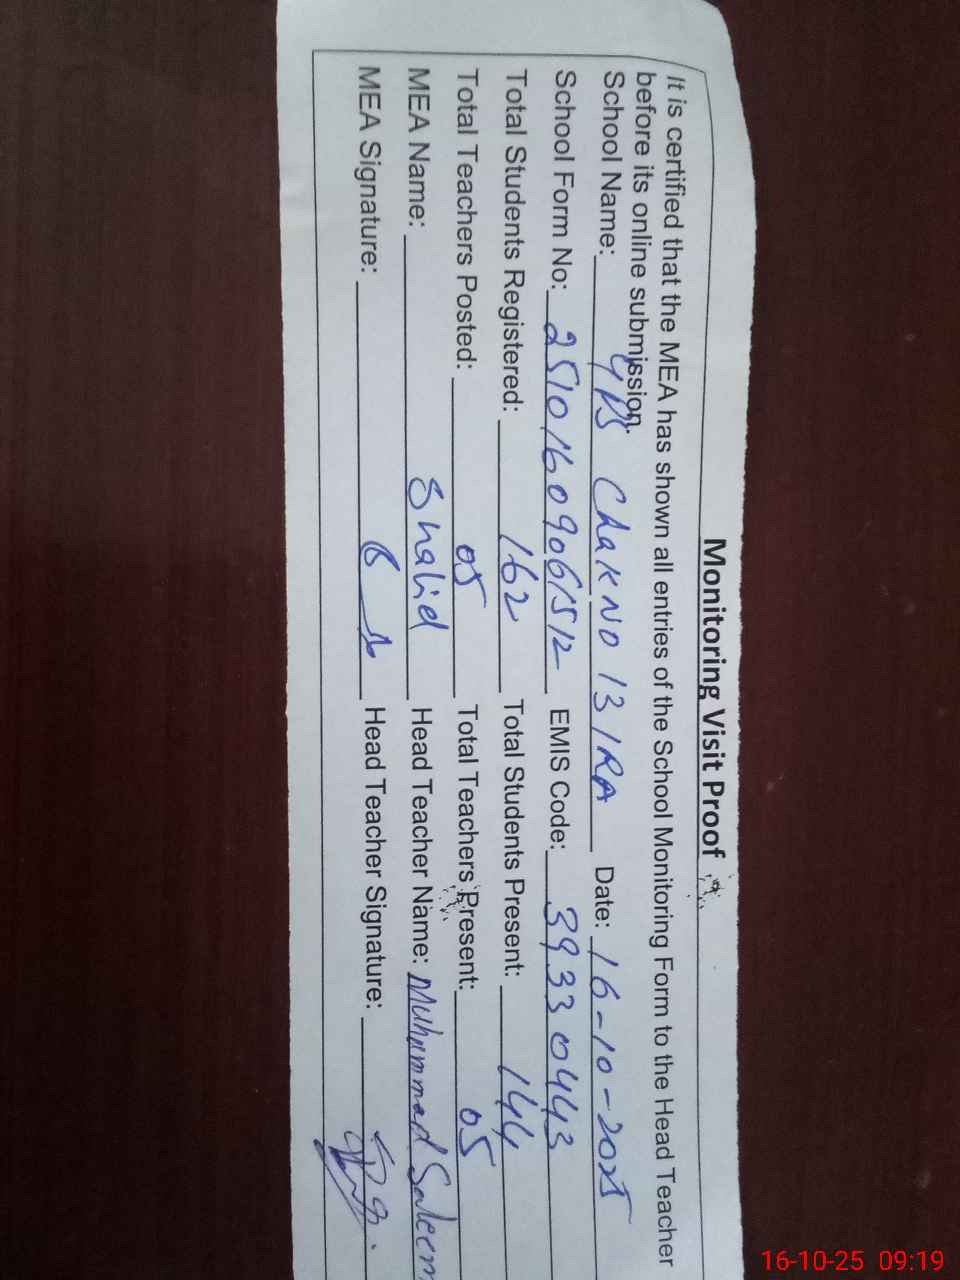 Monitoring Visit Proof
It is certified that the MEA has shown all entries of the School Monitoring Form to the Head Teacher
before its online submission.
School Name: GPS Chak No 13/RA Date: 16-10-2025
School Form No: 25101609061512 EMIS Code: 39330443
Total Students Registered: 162 Total Students Present: 144
Total Teachers Posted: 05 Total Teachers Present: 05
MEA Name: Shahid Head Teacher Name: Muhammad Saleem
MEA Signature: Head Teacher Signature:
16-10-25 09:19